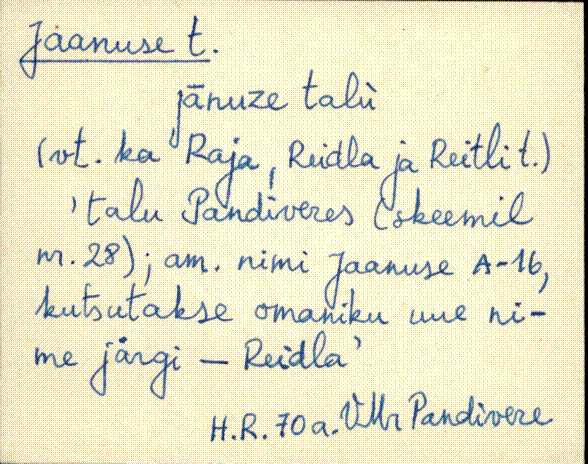 Jaanuse t.
jānuze talù
(vt. ka Raja, Reidla ja Reitli t.)
'talu Pandiveres (skeemil
nr. 28); am. nimi Jaanuse A-16,
kutsutakse omaniku uue ni-
me järgi – Reidla'
H.R. 70a. VMr Pandivere